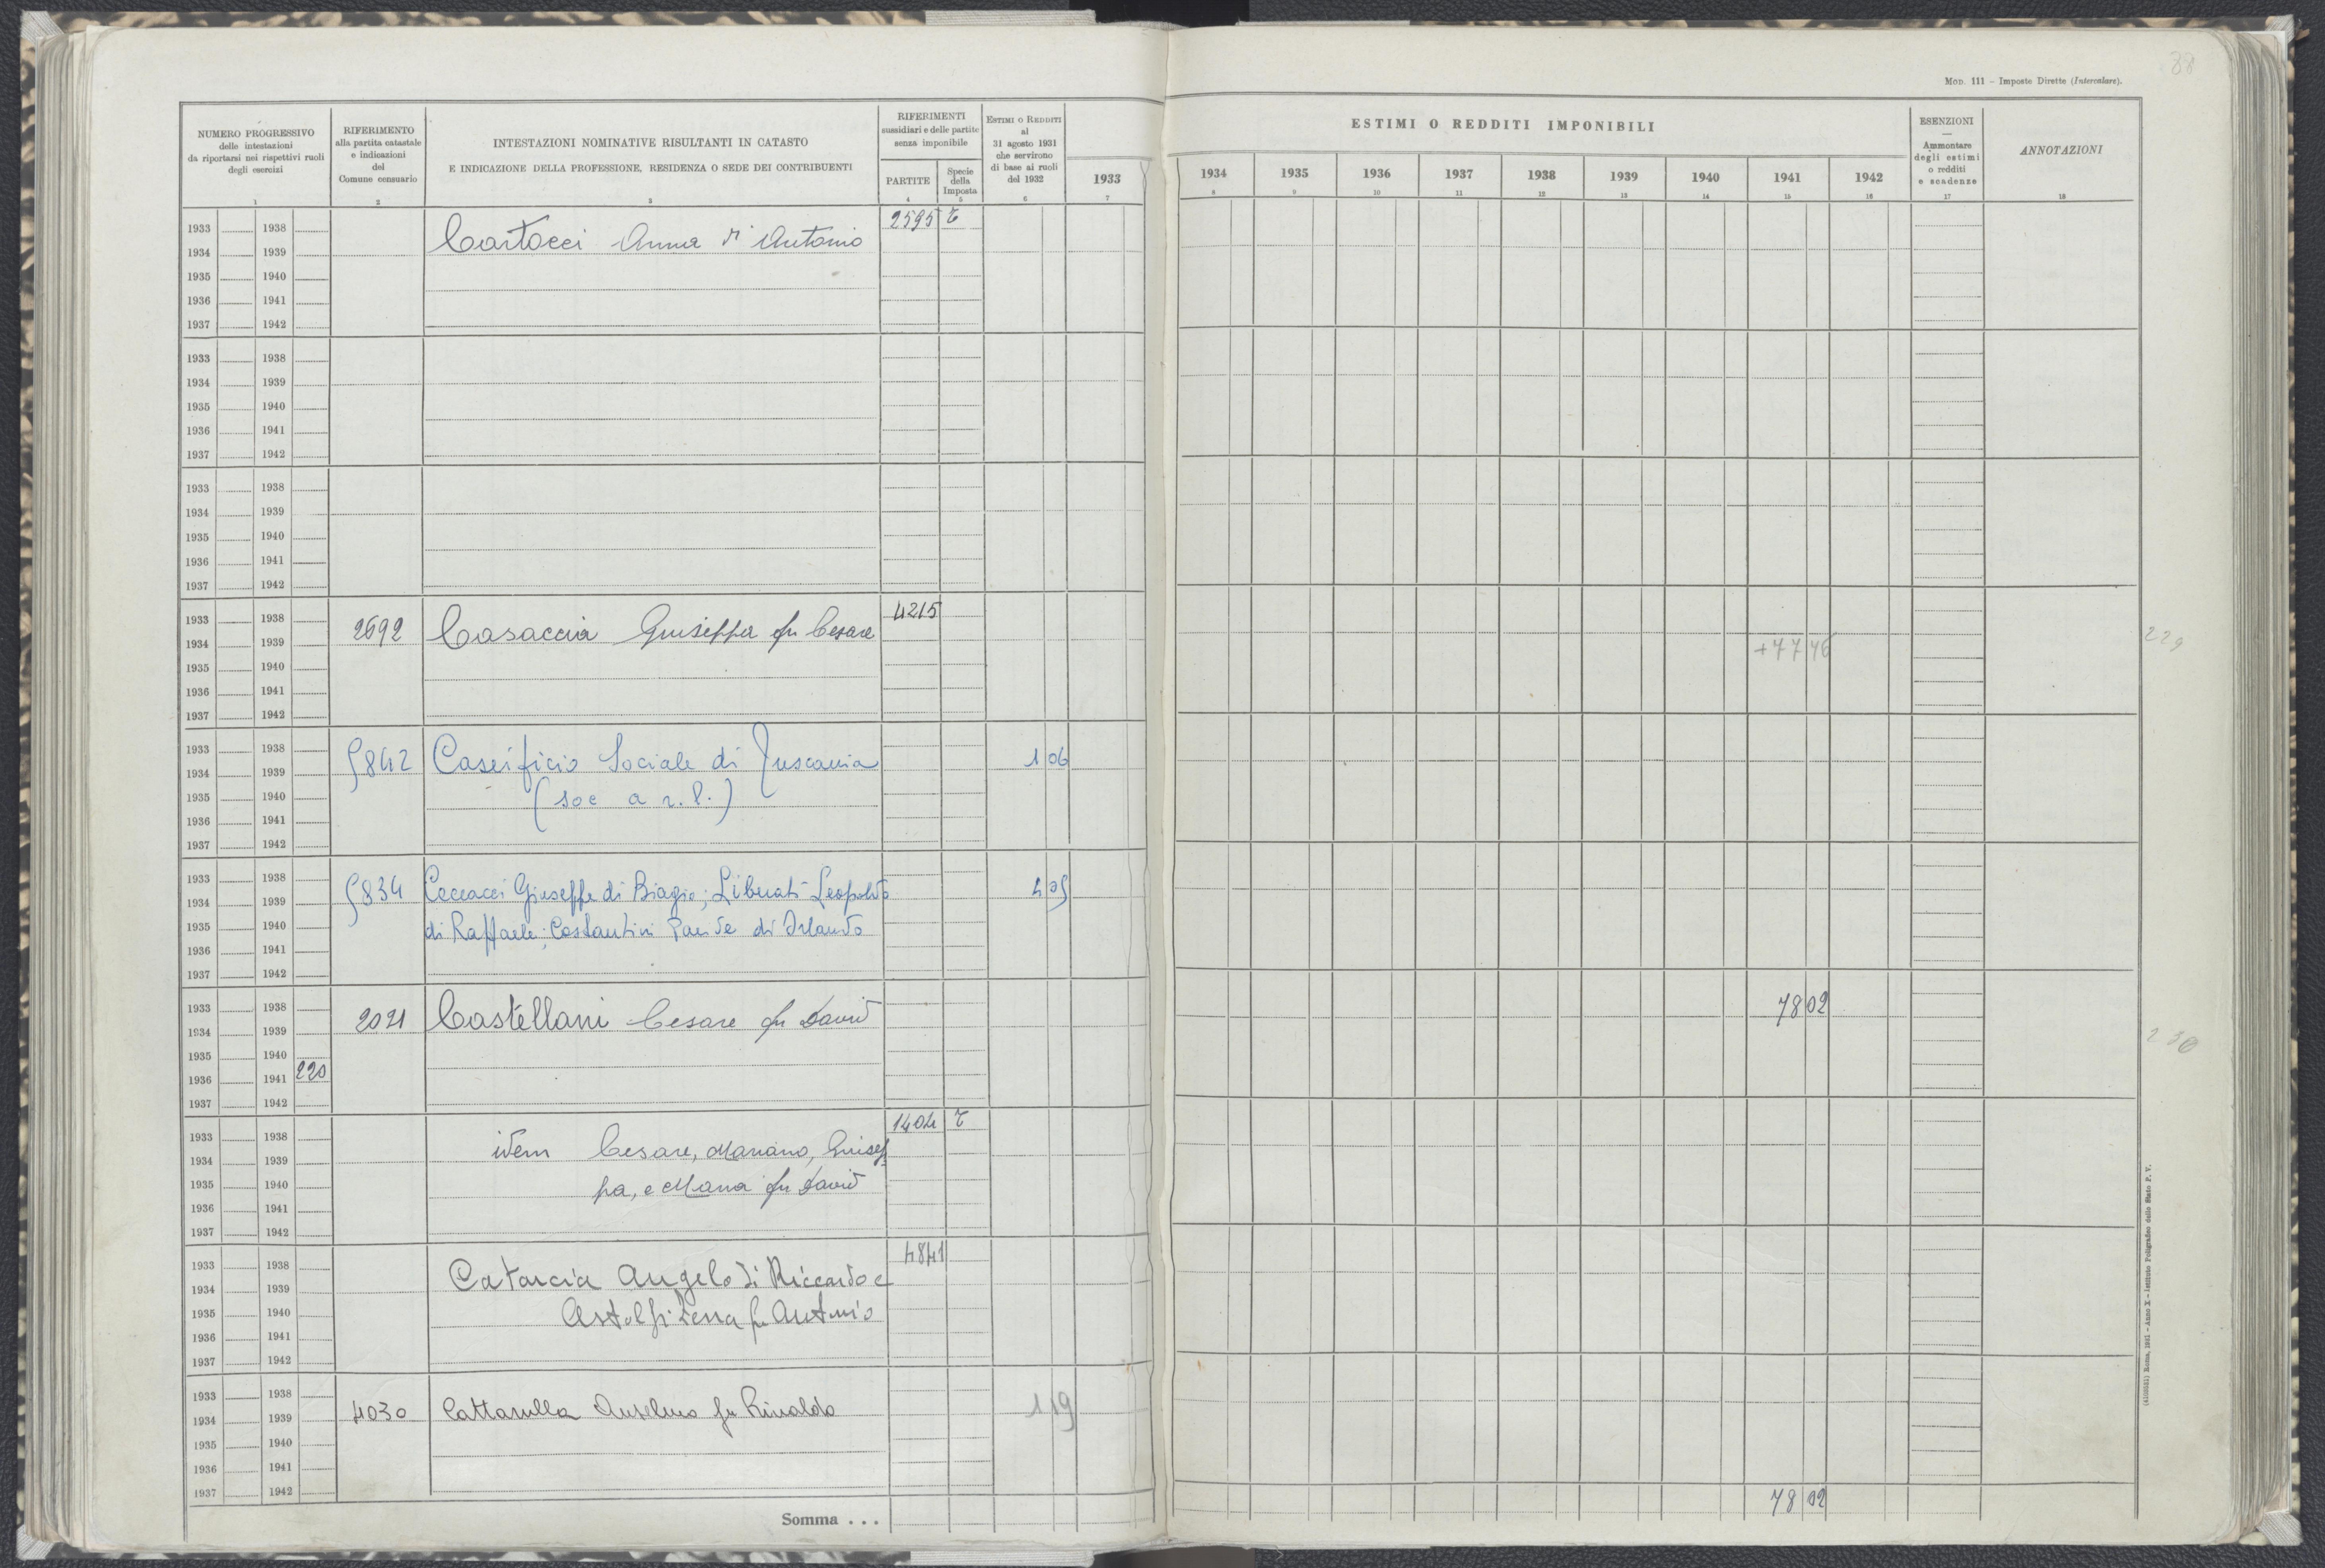 88
MOD. 111 – Imposte Dirette (Intercalare).
NUMERO PROGRESSIVO
delle intestazioni
da riportarsi nei rispettivi ruoli
degli esercizi
1
RIFERIMENTO
alla partita catastale
e indicazioni
del
Comune censuario
2
INTESTAZIONI NOMINATIVE RISULTANTI IN CATASTO
E INDICAZIONE DELLA PROFESSIONE, RESIDENZA O SEDE DEI CONTRIBUENTI
3
RIFERIMENTI
sussidiari e delle partite
senza imponibile
PARTITE
4
Specie
della
Imposta
5
ESTIMI O REDDITI
al
31 agosto 1931
che servirono
di base ai ruoli
del 1932
6
ESTIMI O REDDITI IMPONIBILI
1933 1934 1935 1936 1937 1938 1939 1940 1941 1942
7 8 9 10 11 12 13 14 15 16
ESENZIONI
—
Ammontare
degli estimi
o redditi
e scadenze
17
ANNOTAZIONI
18
1933 1938 2595 T
1934 1939 Cartocci Anna di Antonio
1935 1940
1936 1941
1937 1942
1933 1938
1934 1939
1935 1940
1936 1941
1937 1942
1933 1938
1934 1939
1935 1940
1936 1941
1937 1942
1933 1938 4215
1934 1939 2692 Casaccia Giuseppa fu Cesare +77 46 229
1935 1940
1936 1941
1937 1942
1933 1938
1934 1939 5842 Caseificio Sociale di Tuscania 1 06
1935 1940 (soc a r.l.)
1936 1941
1937 1942
1933 1938
1934 1939 5834 Ceccacci Giuseppe di Biagio; Liberati Leopoldo
1935 1940 di Raffaele; Costantini di Orlando
1936 1941
1937 1942
1933 1938 78 02
1934 1939 2021 Castellani Cesare fu David 230
1935 1940
1936 1941 220
1937 1942
1933 1938 1404 T
1934 1939 idem Cesare, Mariano, Giusep
1935 1940 pa, e Maria fu David
1936 1941
1937 1942
1933 1938 4841
1934 1939 Catarcia Angelo di Riccardo e
1935 1940 Astolfi fu Antonio
1936 1941
1937 1942
1933 1938
1934 1939 4030 Cattarulla Anselmo fu Rinaldo 1 19
1935 1940
1936 1941
1937 1942
Somma . . . 78 02
Roma, 1931 – Anno X – Istituto Poligrafico dello Stato P. V.